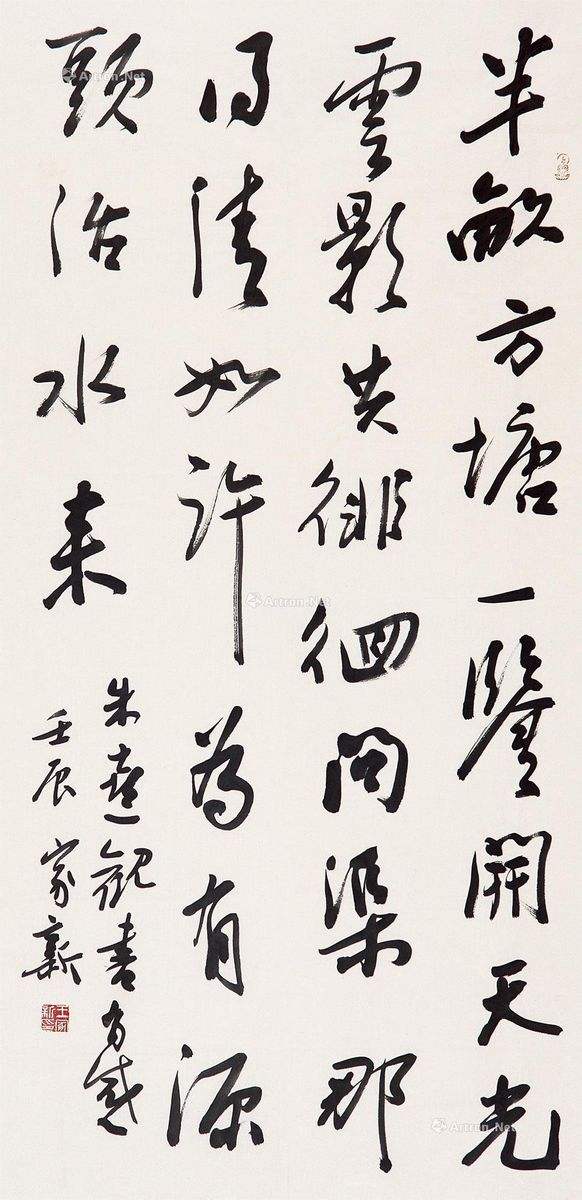 半畝方塘一鑒開天光
雲影共徘徊問渠那
得清如許為有源
頭活水來
朱熹觀書有感
壬辰 家新
王家新印
Artron.Net
Artron.Net
Artron.Net